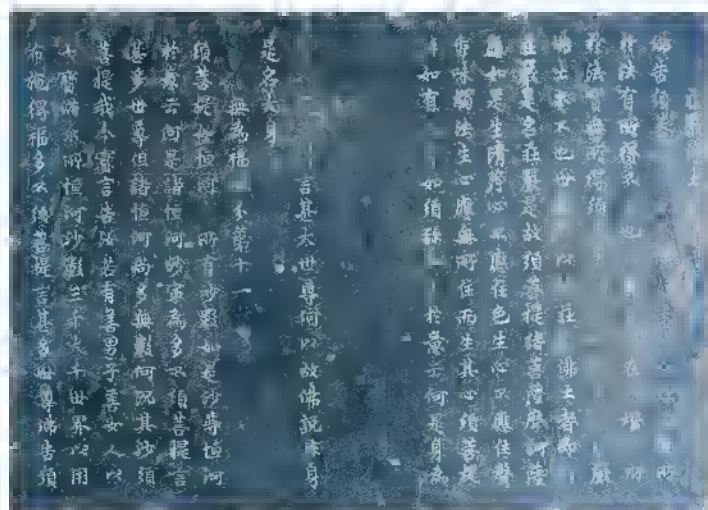 莊嚴淨土
佛告須菩
於法有所得不 也 在 燈 所
於法實無所得須 嚴
佛土不不也世 以 莊 佛土者即
莊嚴是名莊嚴是故須菩提諸菩薩摩訶薩
是生清淨心不應住色生心不應住聲
香味觸法生心應無所住而生其心須菩提
如有 如須彌 於意云何是身為
言甚大世尊何以故佛說非身
是名大身
無為福 分第十一
須菩提如恒河 所有沙數如是沙等恒河
於意云何是諸恒河沙寧為多不須菩提言
甚多世尊但諸恒河尚多無數何況其沙須
菩提我今實言告汝若有善男子善女人以
七寶滿爾所恒河沙數三千大千世界以用
布施得福多不須菩提言甚多世尊佛告須